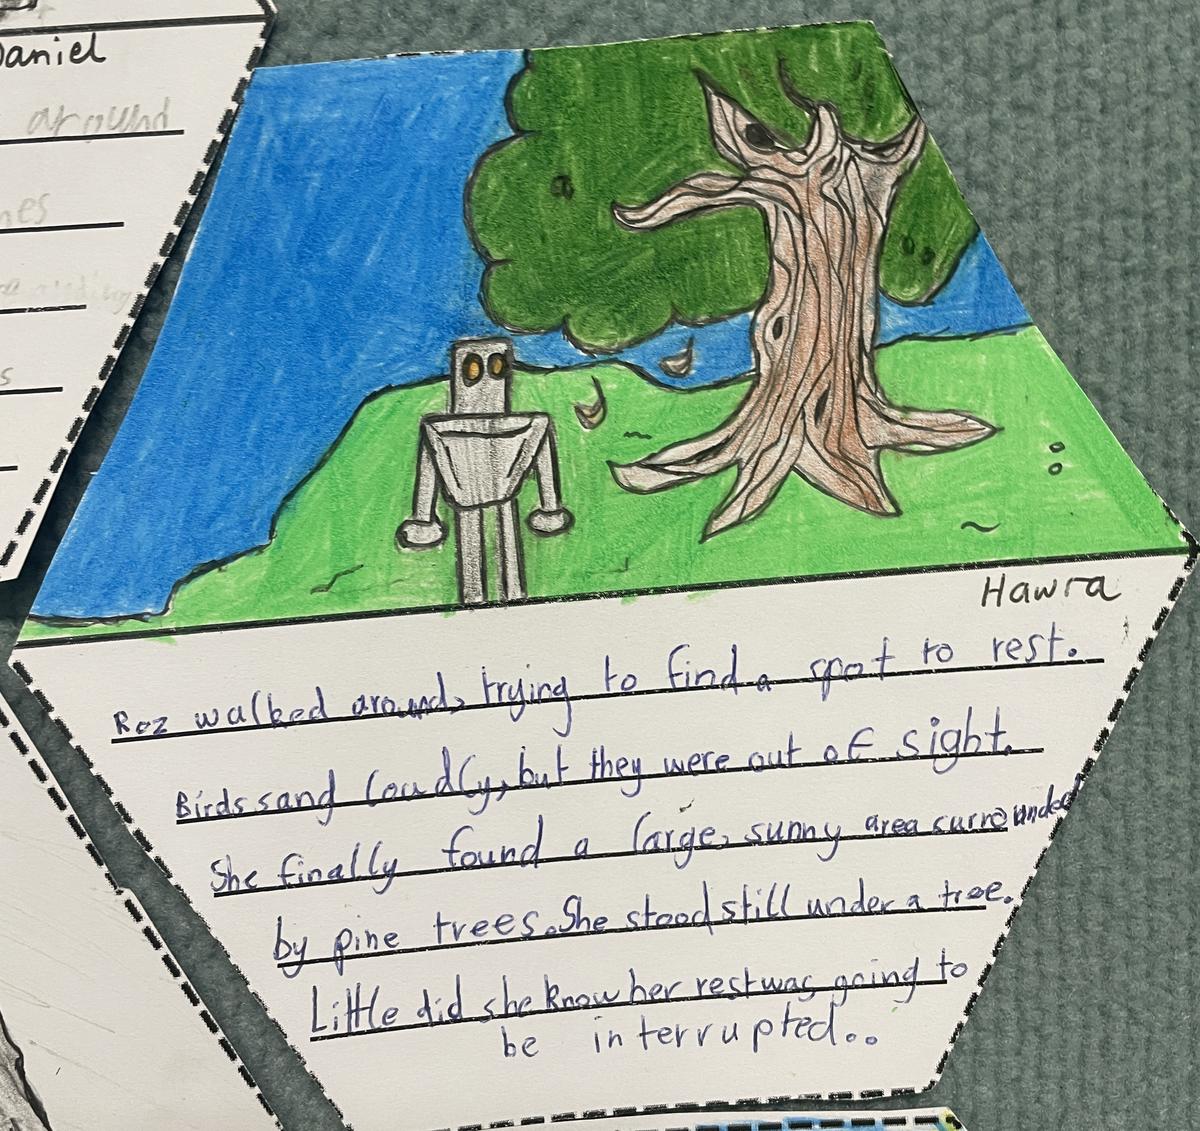 Daniel
around
Hawra
Roz walked around, trying to find a spot to rest.
Birds sand loudly, but they were out of sight.
She finally found a large, sunny area surrounded
by pine trees. She stood still under a tree.
Little did she know her rest was going to
be interrupted...